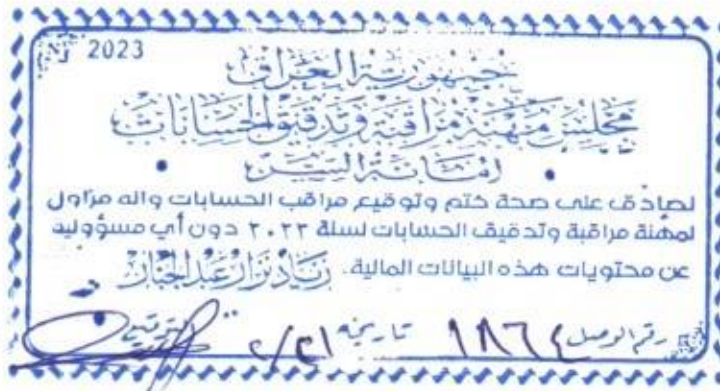 2023
جمهورية العراق
مجلس مهنة مراقبة وتدقيق الحسابات
أمانة السر
نصادق على صحة ختم وتوقيع مراقب الحسابات وانه مزاول
لمهنة مراقبة وتدقيق الحسابات لسنة ٢٠٢٣ دون أي مسؤولية
عن محتويات هذه البيانات المالية. زياد نزار عبد الجبار
رقم الوصل ١٨٦٤ تاريخه ٢/٢١ التوقيع